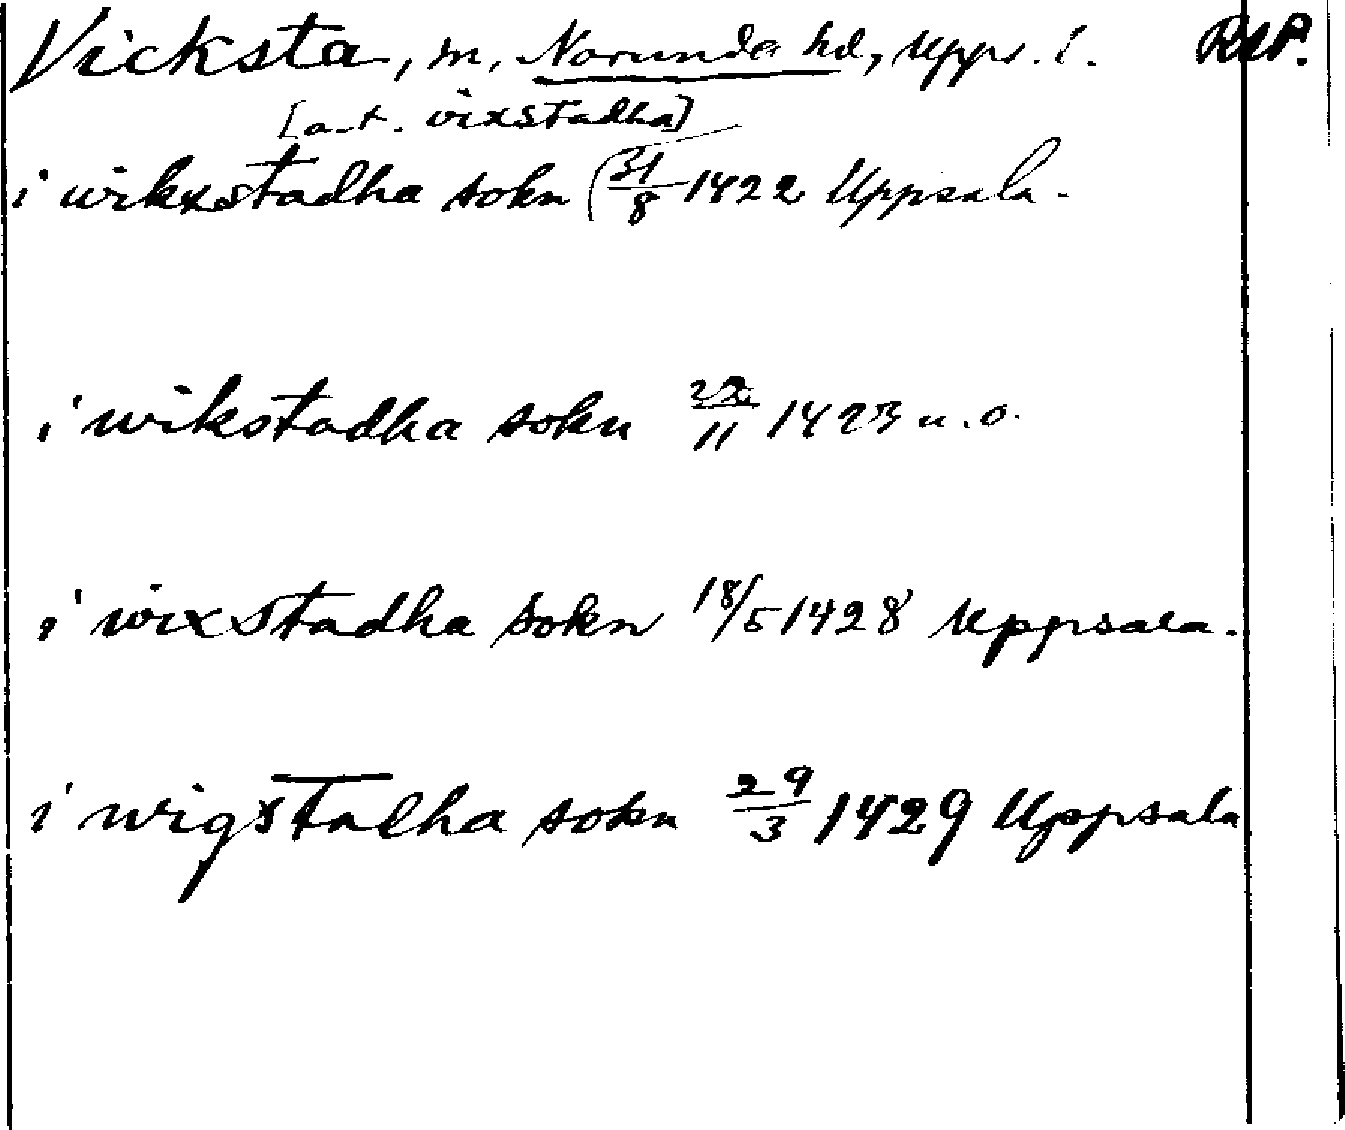 Vicksta, sn, Norunda hd, Upps. l. RAP.
[a-t. vixstadha]
i wikxstadha sokn (31/8 1422 Uppsala.
i wikstadha sokn 22/11 1423 u.o.
i wixstadha sokn 18/5 1428 Uppsala.
i wigxstadha sokn 29/3 1429 Uppsala